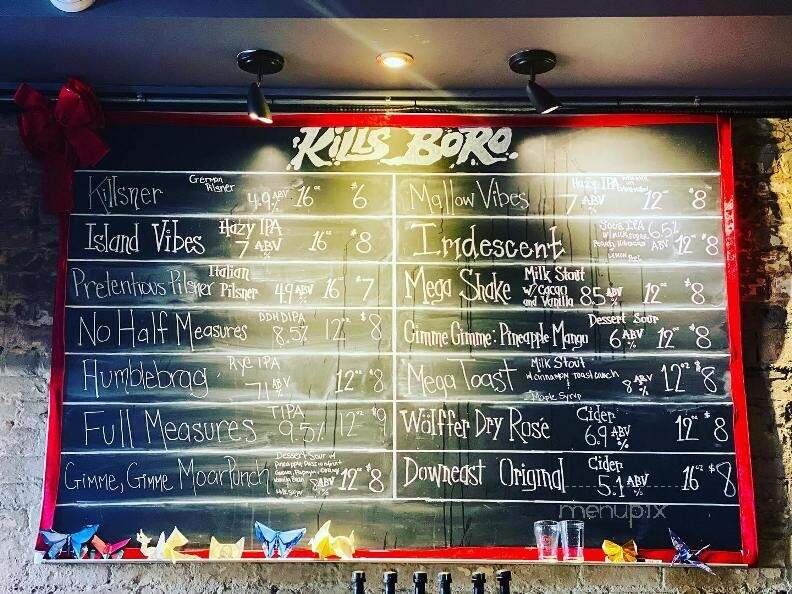 KILLS BORO
Killsner German Pilsner 4.9% ABV 16oz $6
Island Vibes Hazy IPA 7% ABV 16oz $8
Pretentious Pilsner Italian Pilsner 4.9% ABV 16oz $7
No Half Measures DDH DIPA 8.5% 12oz $8
Humblebrag Rye IPA 7% ABV 12oz $8
Full Measures TIPA 9.5% 12oz $9
Gimme, Gimme Moar Punch Dessert Sour w/ Pineapple, Passionfruit Guava, Papaya, Orange Vanilla Bean 8% ABV 12oz $8
Mallow Vibes Hazy IPA 7% ABV 12oz $8
Iridescent Sour IPA w/ milk sugar Peach, Lemon 6.5% ABV 12oz $8
Mega Shake Milk Stout w/ cacao and Vanilla 8.5% ABV 12oz $8
Gimme Gimme: Pineapple Mango Dessert Sour 6% ABV 12oz $8
Mega Toast Milk Stout w/ cinnamon toast crunch Maple Syrup 8% ABV 12oz $8
Wölffer Dry Rosé Cider 6.9% ABV 12oz $8
Downeast Original Cider 5.1% ABV 16oz $8
menupix